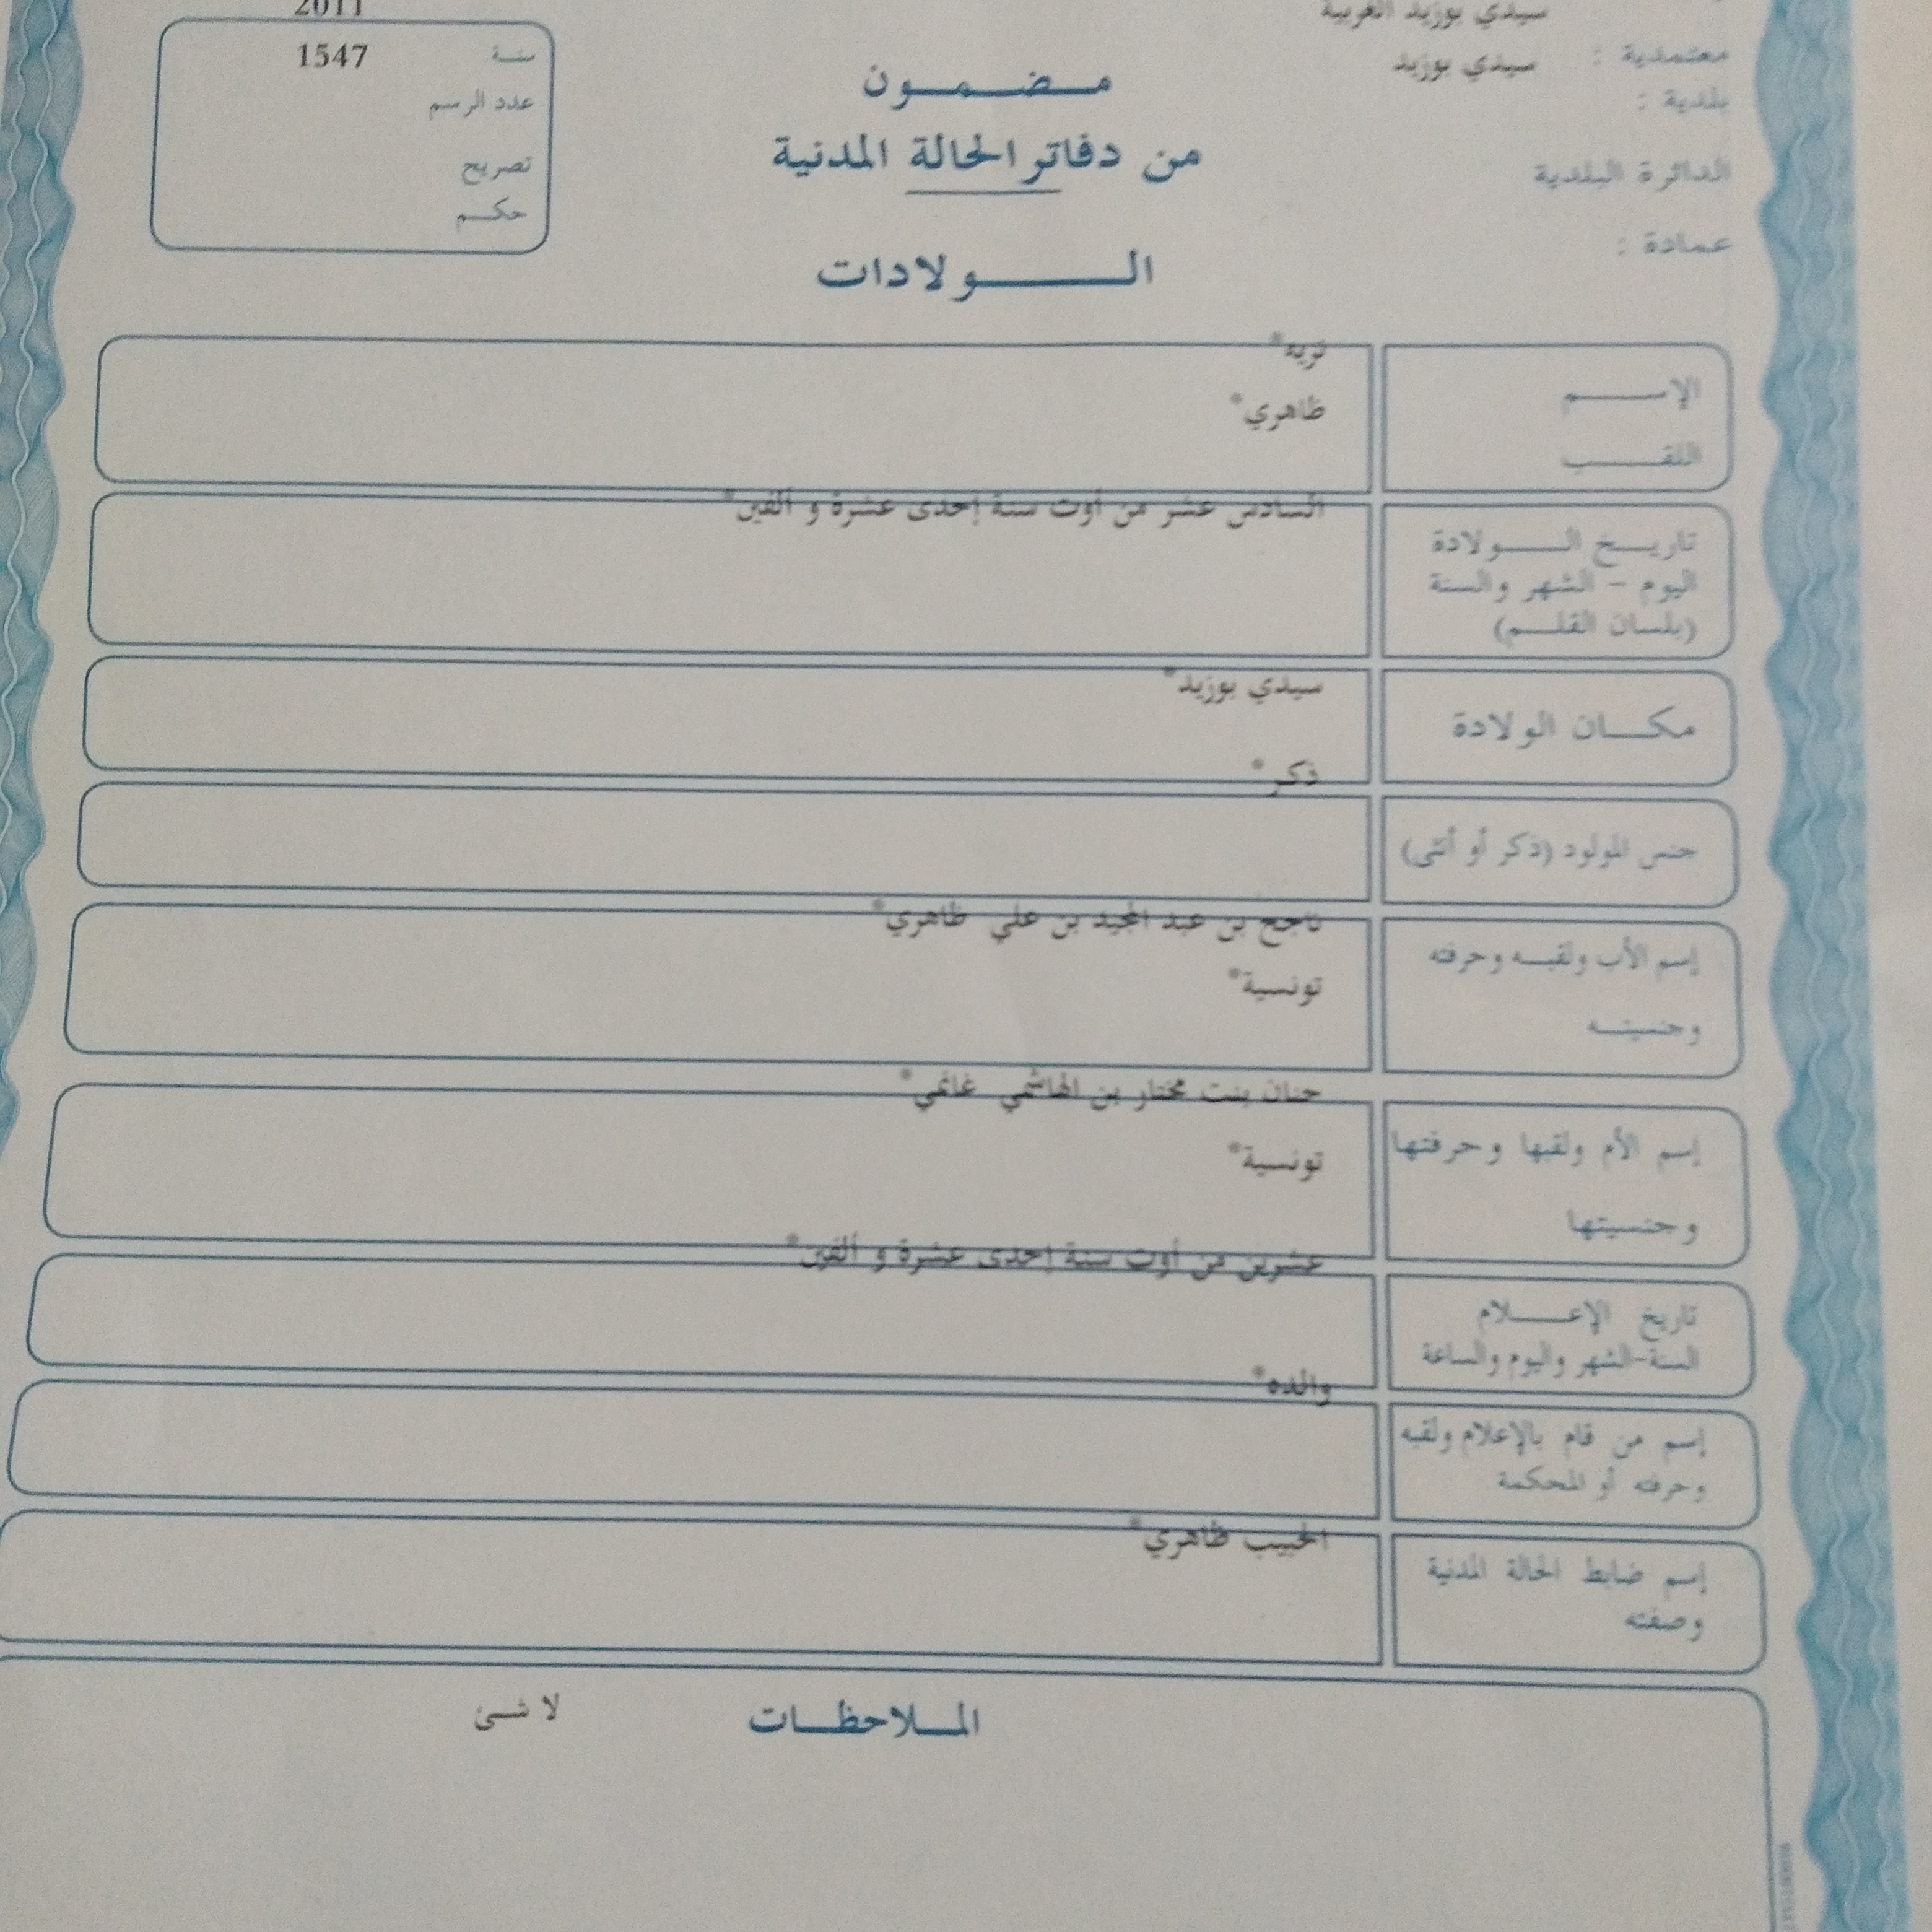 2011
سيدي بوزيد الغربية
سنة 1547
معتمدية :
سيدي بوزيد
عدد الرسم
بلدية :
مضمون
من دفاتر الحالة المدنية
تصريح
الدائرة البلدية
حكم
عمادة :
الولادات
نزيه*
الإسم
ظاهري*
اللقب
السادس عشر من أوت سنة إحدى عشرة و ألفين*
تاريخ الولادة
اليوم - الشهر والسنة
(بلسان القلم)
سيدي بوزيد*
مكان الولادة
ذكر*
جنس المولود (ذكر أو أنثى)
ناجح بن عبد المجيد بن علي ظاهري*
إسم الأب ولقبه وحرفته
تونسية*
وجنسيته
حنان بنت مختار بن الهاشمي غانمي*
إسم الأم ولقبها وحرفتها
تونسية*
وجنسيتها
عشرين من أوت سنة إحدى عشرة و ألفين*
تاريخ الإعلام
السنة-الشهر واليوم والساعة
والده*
إسم من قام بالإعلام ولقبه
وحرفته أو المحكمة
الحبيب ظاهري*
إسم ضابط الحالة المدنية
وصفته
الملاحظات
لا شئ